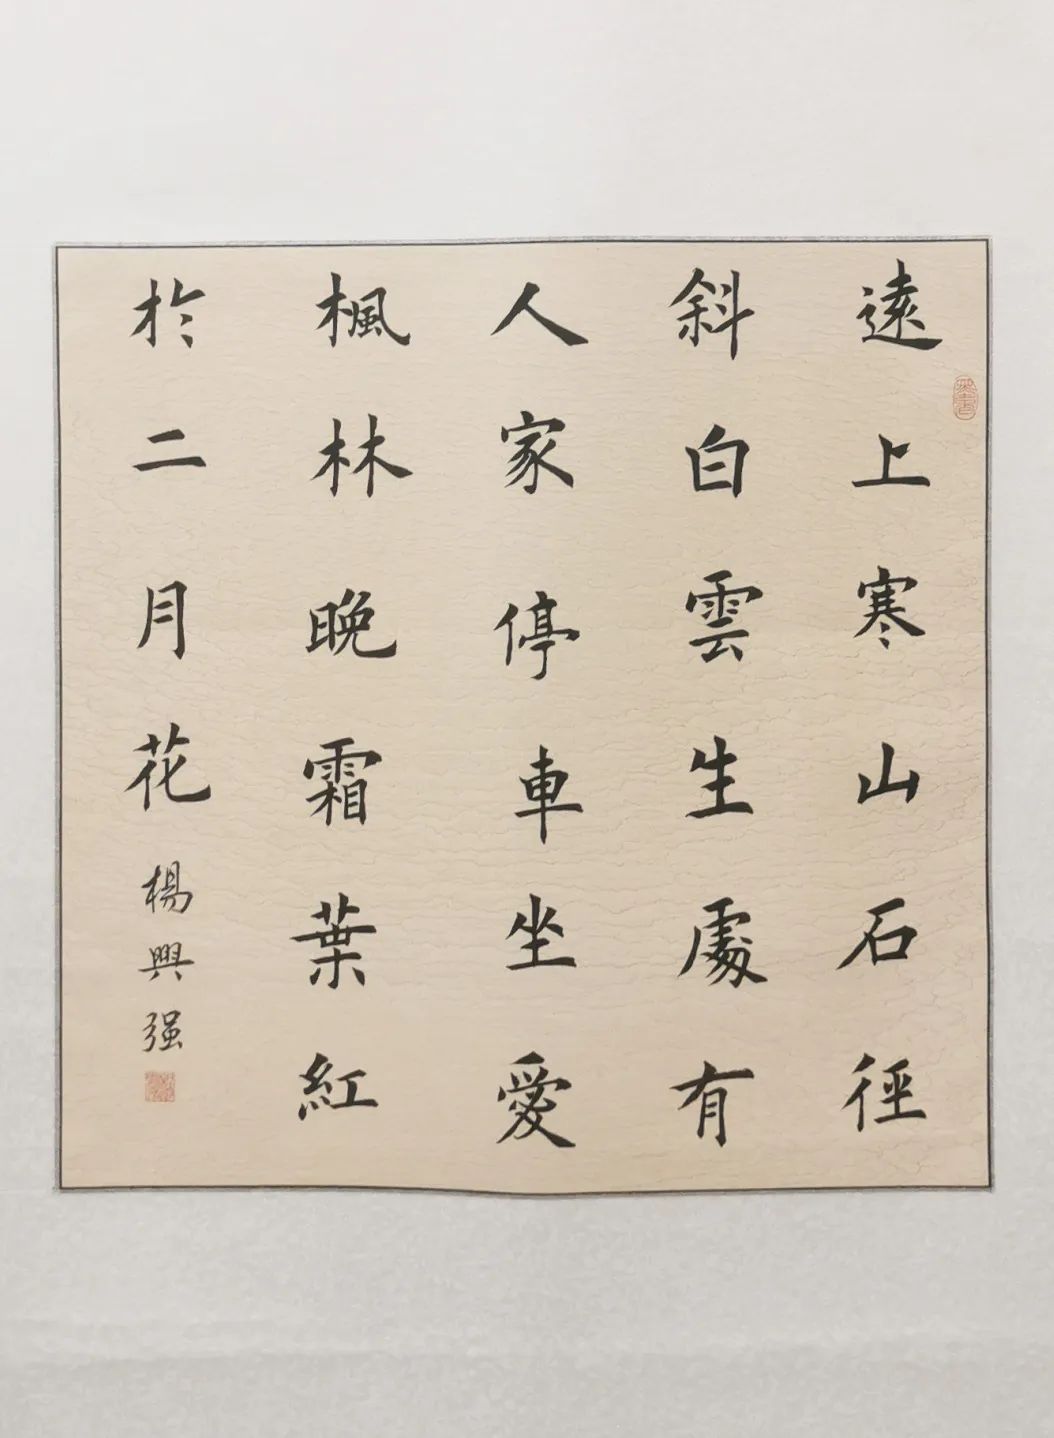 遠上寒山石徑
斜白雲生處有
人家停車坐愛
楓林晚霜葉紅
於二月花
楊興强